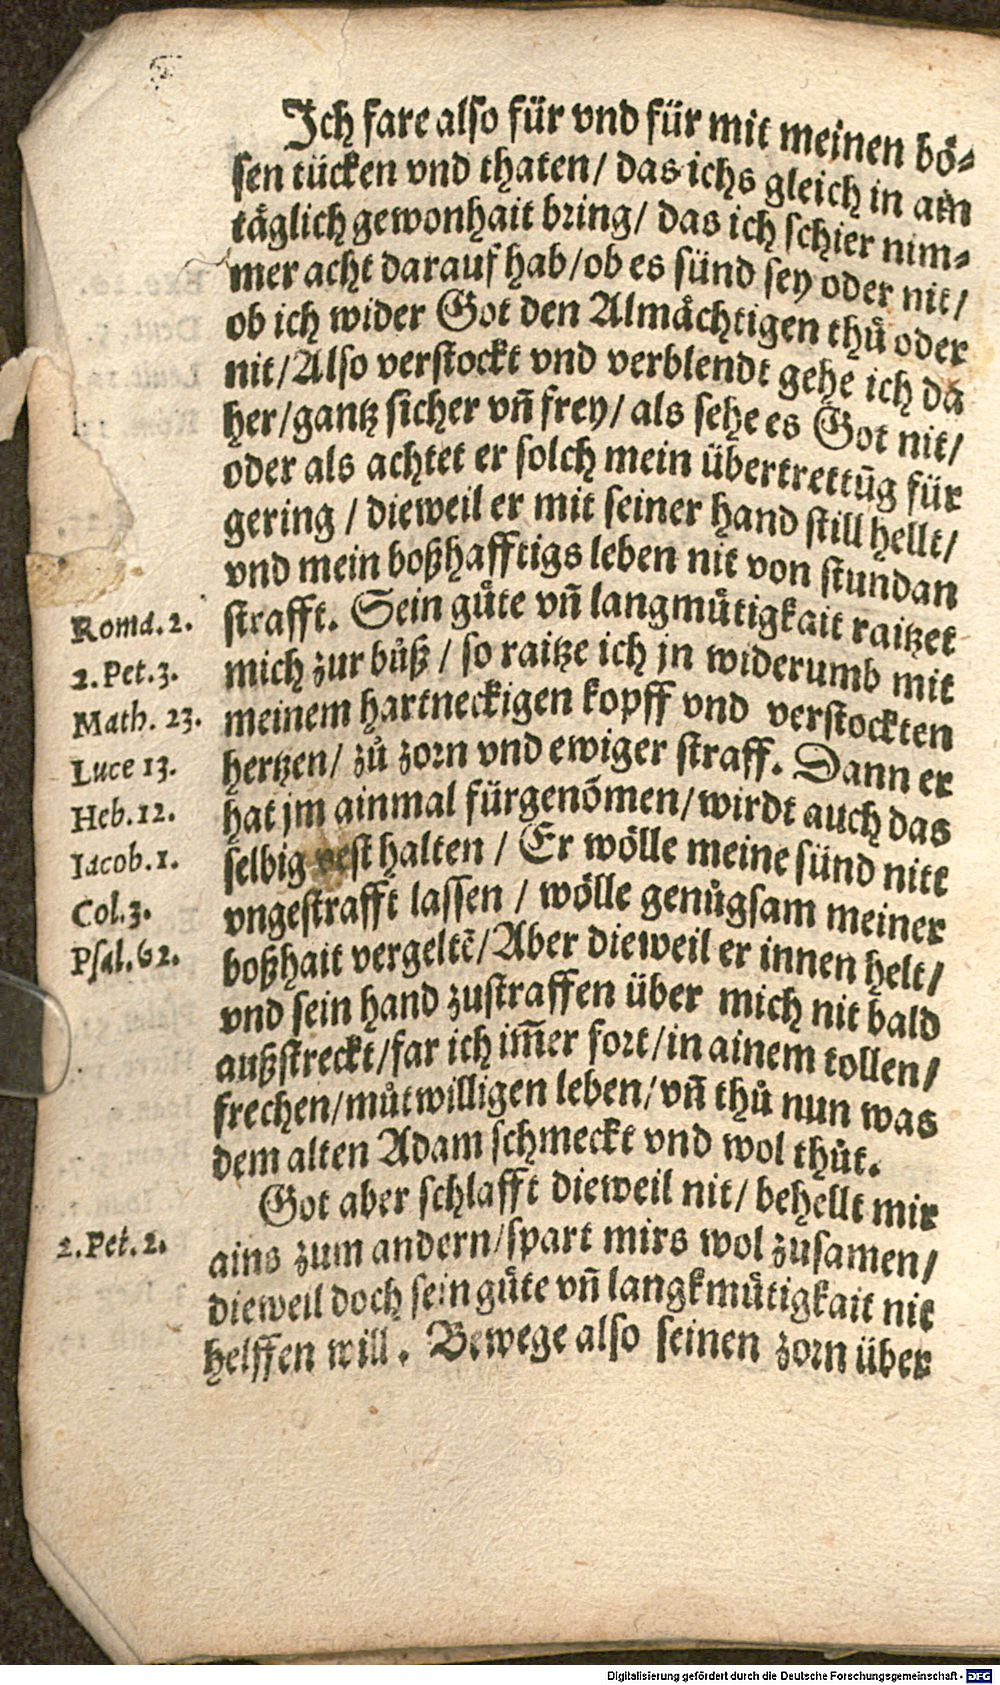 Ich fare also für vnd für mit meinen bö⸗
sen tücken vnd thaten/ das ichs gleich in ain
täglich gewonhait bring/ das ich schier nim⸗
mer acht darauf hab/ob es sünd sey oder nit/
ob ich wider Got den Almächtigen thů oder
nit/Also verstockt vnd verblendt gehe ich da
her/gantz sicher vñ frey/ als sehe es Got nit/
oder als achtet er solch mein übertrettũg für
gering / dieweil er mit seiner hand still hellt/
vnd mein boßhafftigs leben nit von stundan
Romā. 2. strafft. Sein gůte vñ langmůtigkait raitzet
2. Pet. 3. mich zur bůß / so raitze ich jn widerumb mit
Math. 23. meinem hartneckigen kopff vnd verstockten
Luce 13. hertzen/ zů zorn vnd ewiger straff. Dann er
Heb. 12. hat jm ainmal fürgenõmen/wirdt auch das
Iacob. 1. selbig vest halten / Er wölle meine sünd nitt
Col. 3. vngestrafft lassen / wölle genůgsam meiner
Psal. 62. boßhait vergeltẽ/Aber dieweil er innen helt/
vnd sein hand zustraffen über mich nit bald
außstreckt/far ich im̃er fort/in ainem tollen/
frechen/můtwilligen leben/vñ thů nun was
dem alten Adam schmeckt vnd wol thůt.
Got aber schlafft dieweil nit/ behellt mir
2. Pet. 2. ains zum andern/spart mirs wol zusamen/
dieweil doch sein gůte vñ langkmůtigkait nit
helffen will. Bewege also seinen zorn über
Digitalisierung gefördert durch die Deutsche Forschungsgemeinschaft - DFG